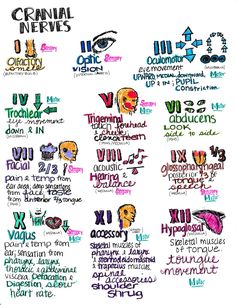 CRANIAL
NERVES
I
Sensory
Olfactory
smell
II
Sensory
Optic
VISION
III
Motor
Oculomotor
eye movement
UPWARD, Medial, downward,
UP & IN, PUPIL
Constriction
IV
Motor
Trochlear
eye movement
DOWN & IN
V
Trigeminal
forehead
& cheek
VI
Motor
abducens
LOOK
side to side
VII
2/3
Sensory
Motor
Facial
pain & temp from
ear area, deep sensations
from
taste
from anterior 2/3 tongue
VIII
Sensory
acoustic
Hearing
balance
IX
1/3
glossopharyngeal
posterior
tongue
speech
X
Motor
Vagus
pain & temp from
ear, deep sensation
from pharynx,
larynx,
thoracic & abdominal
viscera,
Digestion, slow
heart rate.
XI
Motor
accessory
Skeletal muscles of
pharynx & larynx,
sternocleidomastoid
& trapezius muscles,
spinal
shoulder
shrug
XII
Motor
Hypoglossal
Skeletal muscles
of tongue.
toungue
movement